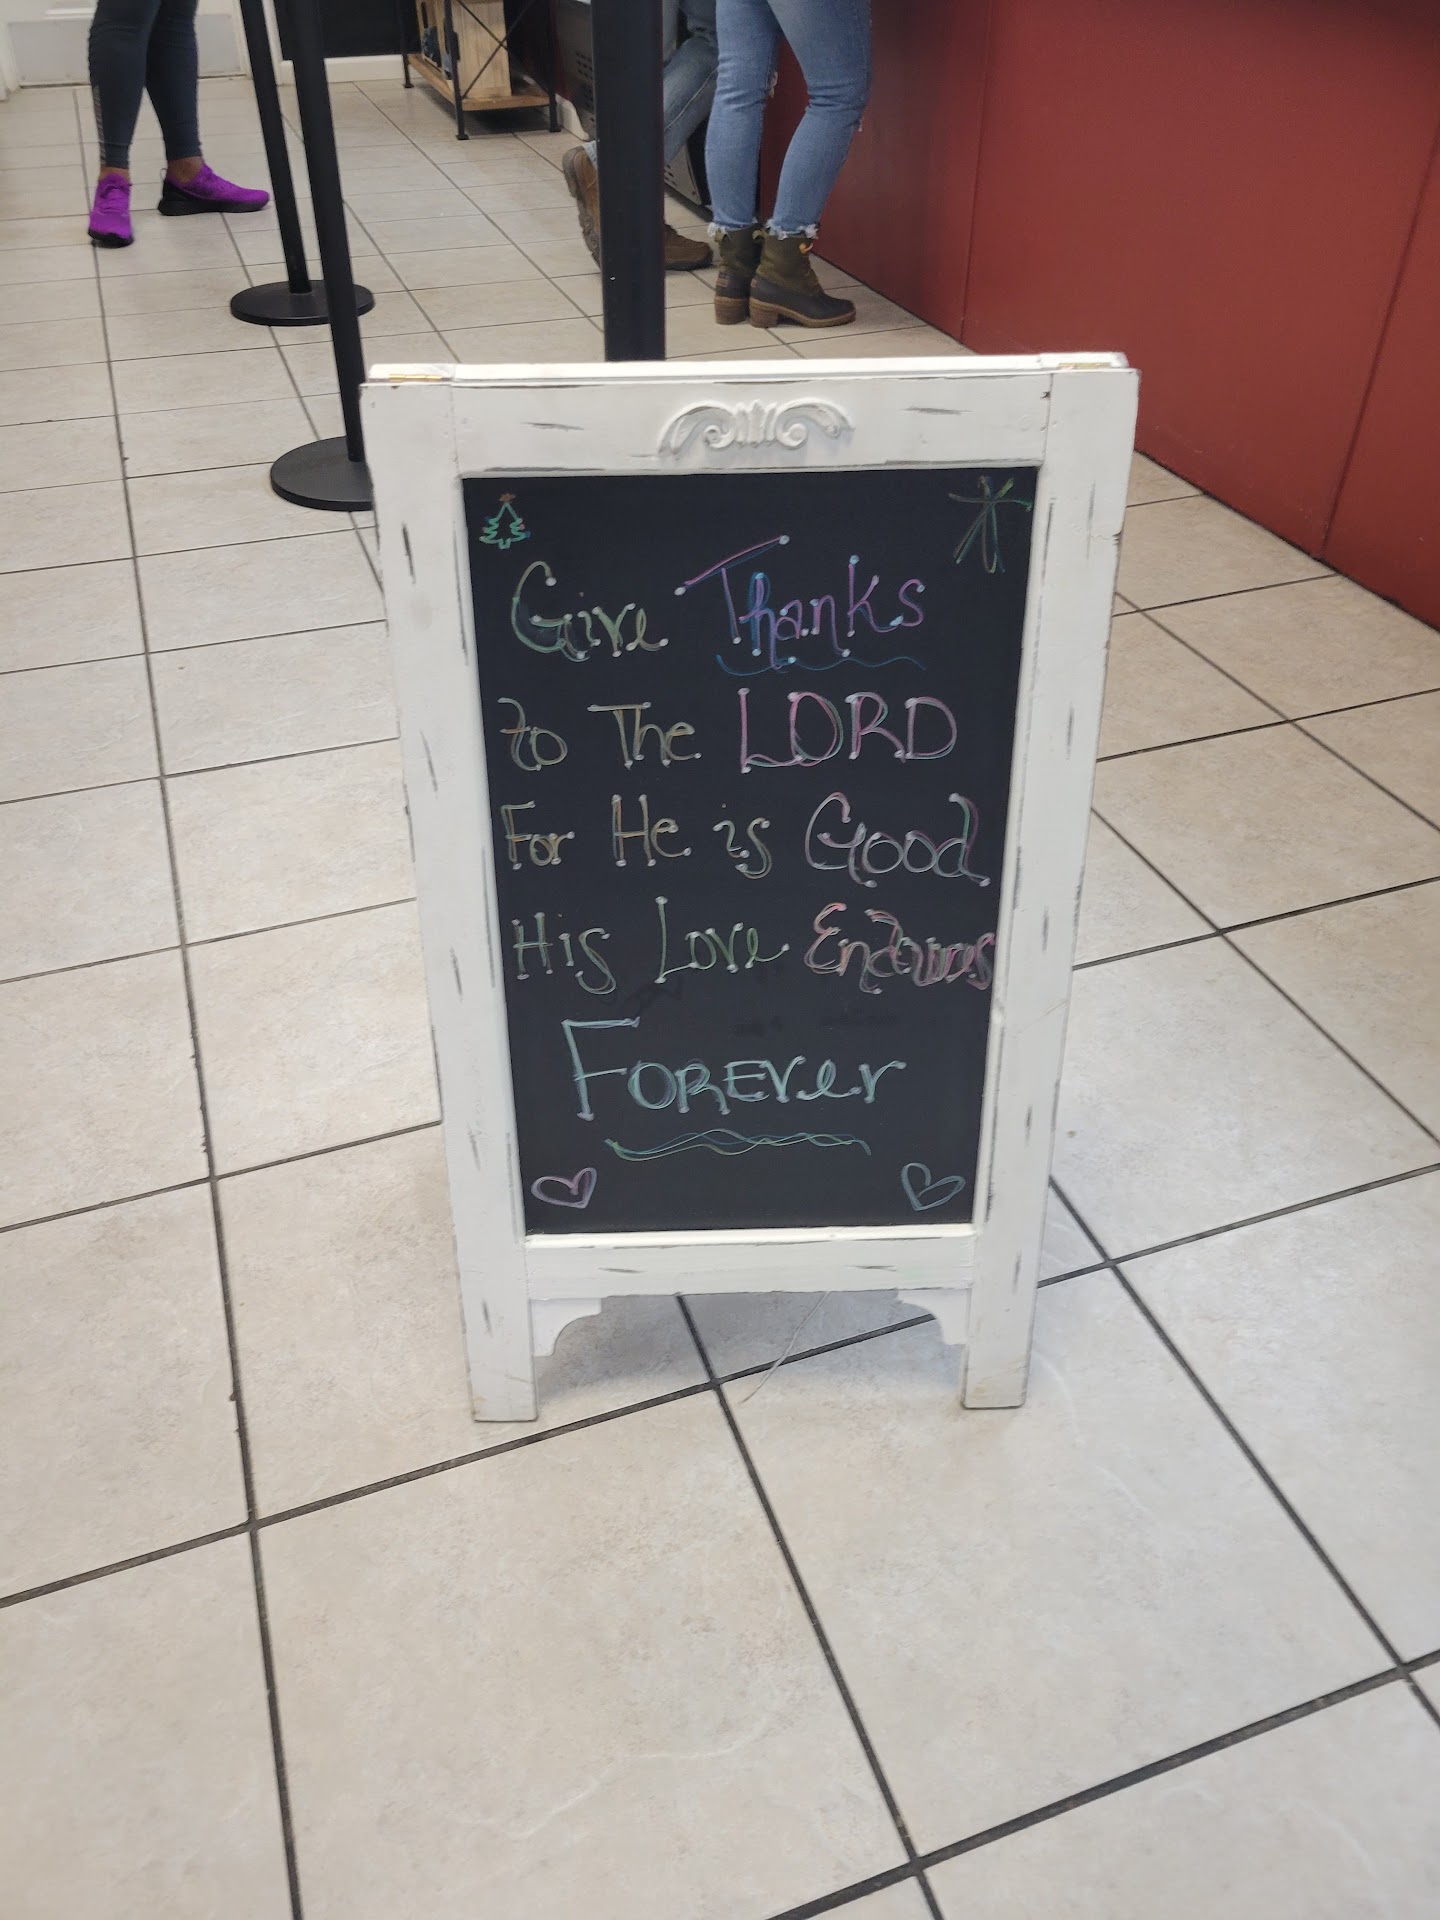 Give Thanks
to The LORD
For He is Good
His Love Endures
FOREVer